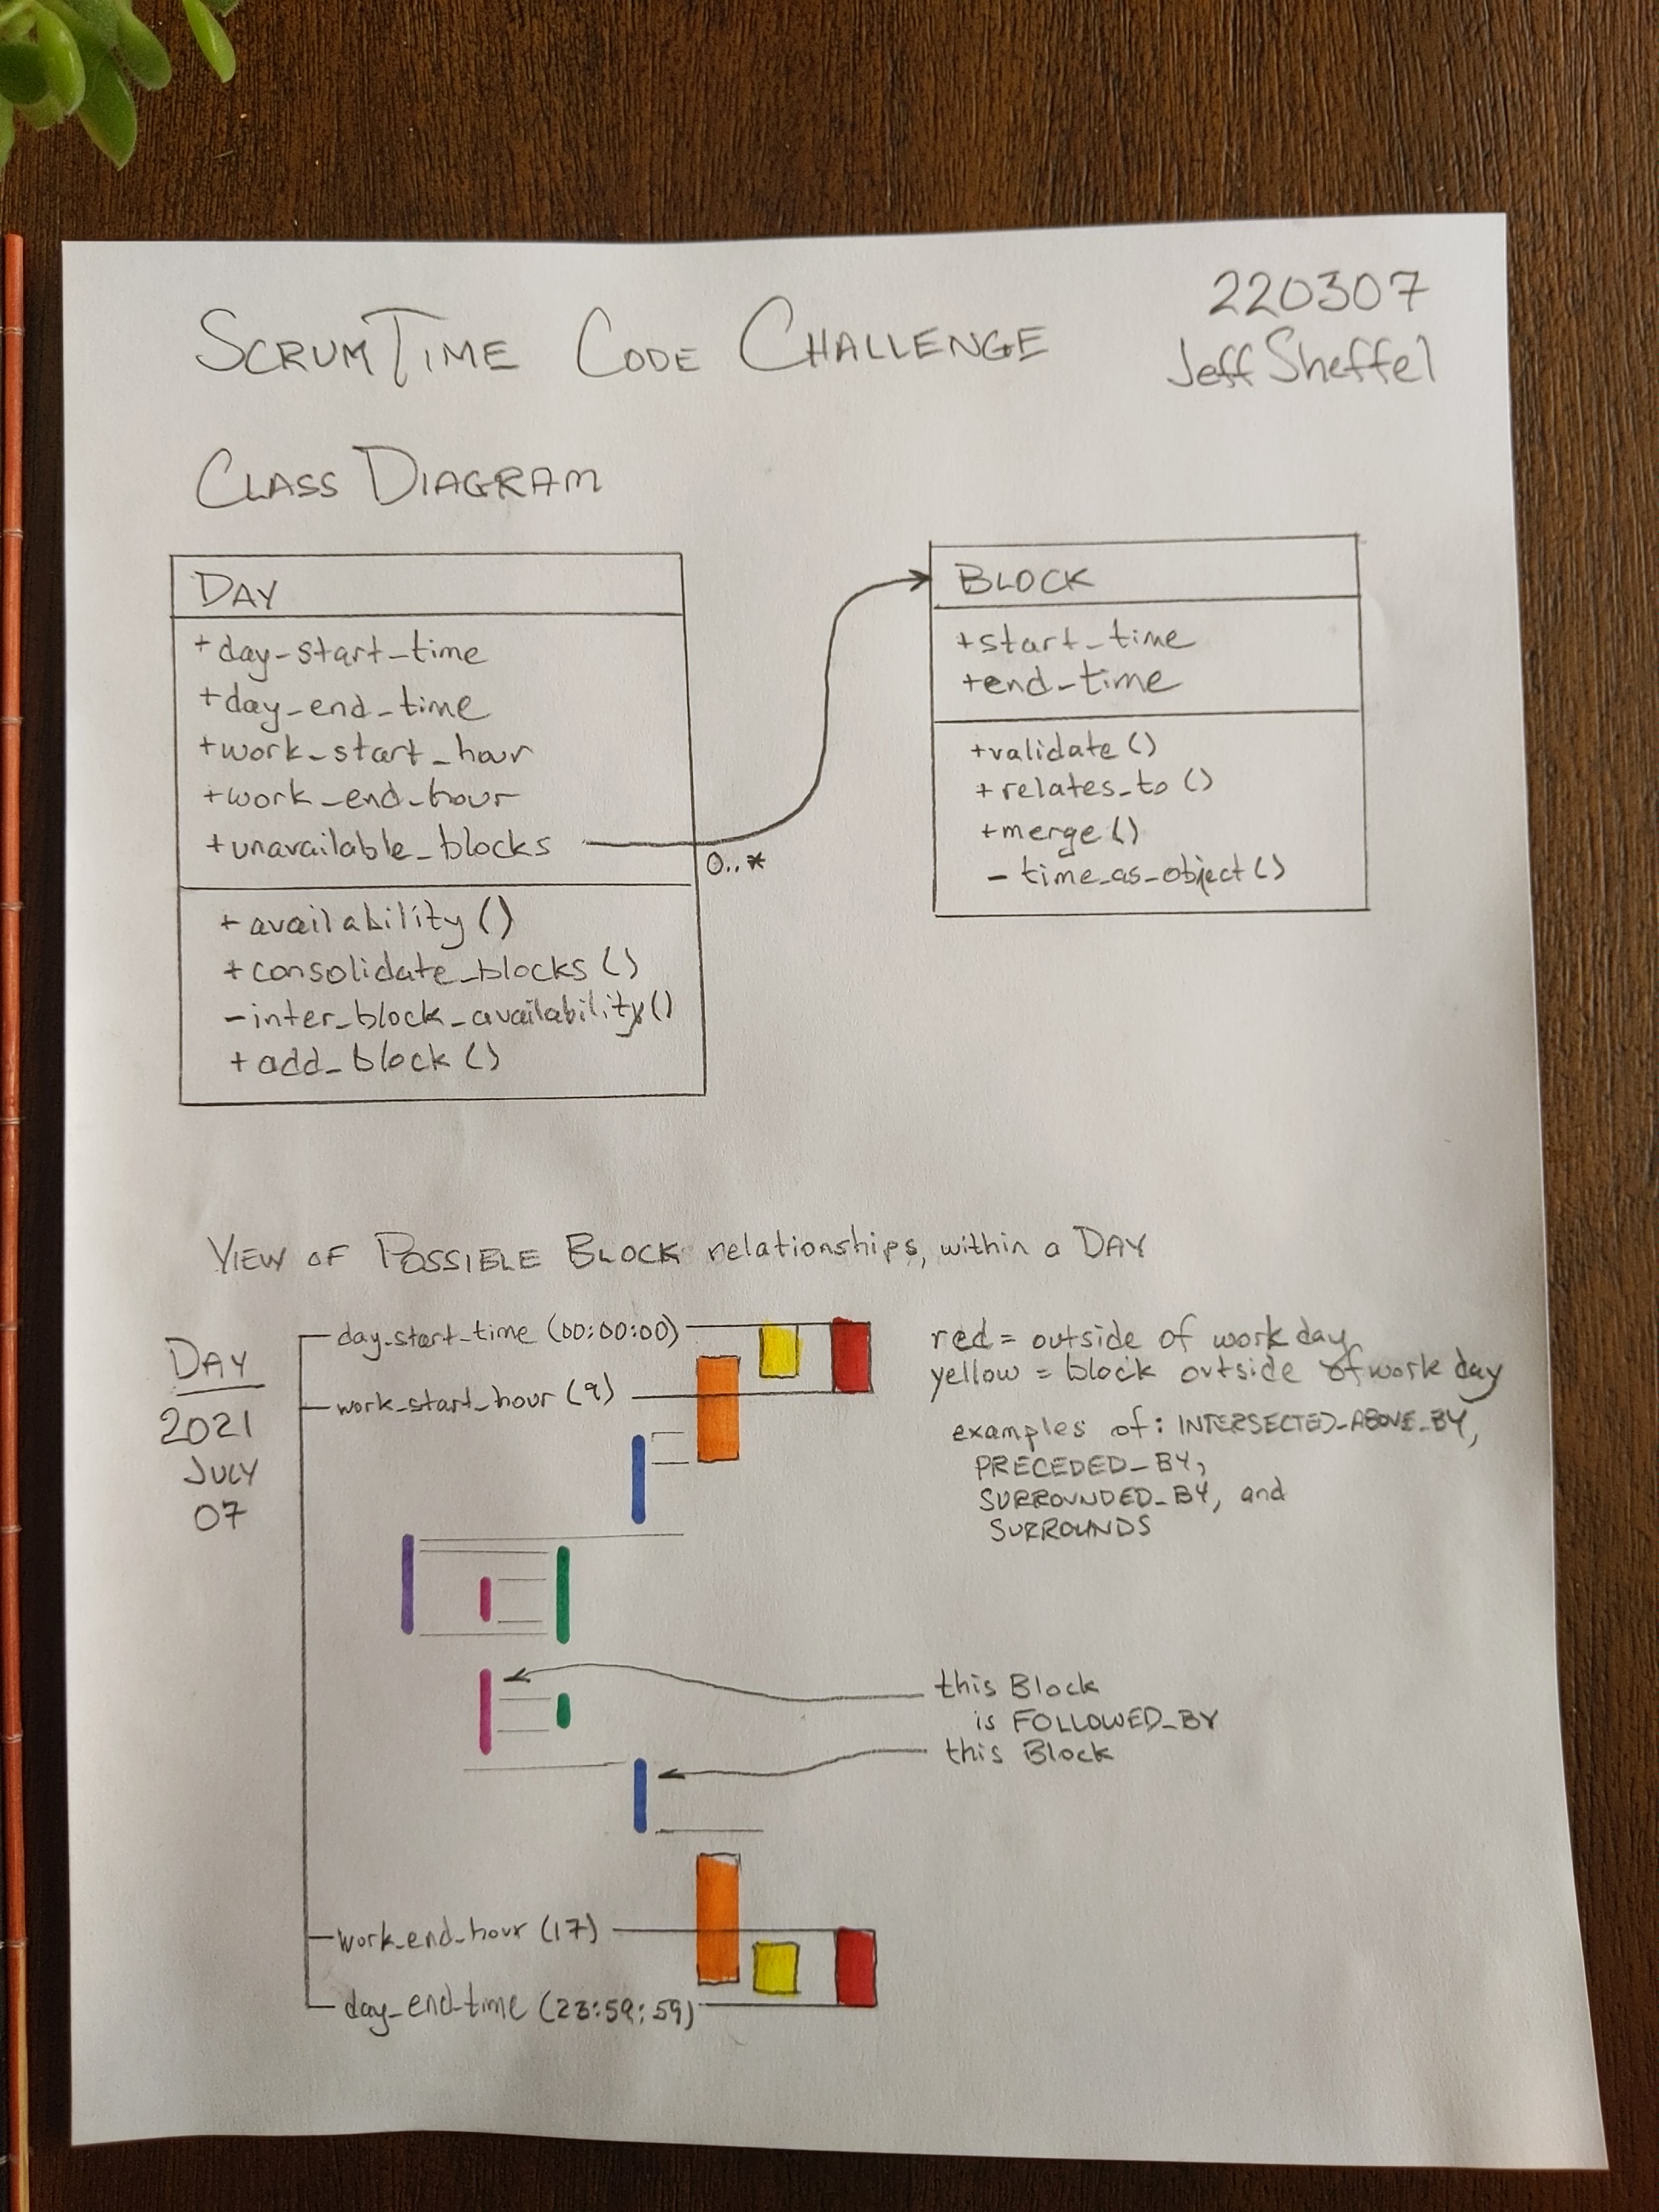 SCRUMTIME CODE CHALLENGE
220307
Jeff Sheffel
CLASS DIAGRAM
DAY
+day_start_time
+day_end_time
+work_start_hour
+work_end_hour
+unavailable_blocks
0..*
+availability()
+consolidate_blocks()
-inter_block_availability()
+add_block()
BLOCK
+start_time
+end_time
+validate()
+relates_to()
+merge()
-time_as_object()
VIEW OF POSSIBLE BLOCK relationships, within a DAY
DAY
2021
JULY
07
day_start_time (00:00:00)
work_start_hour (9)
red = outside of work day
yellow = block outside of work day
examples of: INTERSECTED_ABOVE_BY,
PRECEDED_BY,
SURROUNDED_BY, and
SURROUNDS
this Block
is FOLLOWED_BY
this Block
work_end_hour (17)
day_end_time (23:59:59)